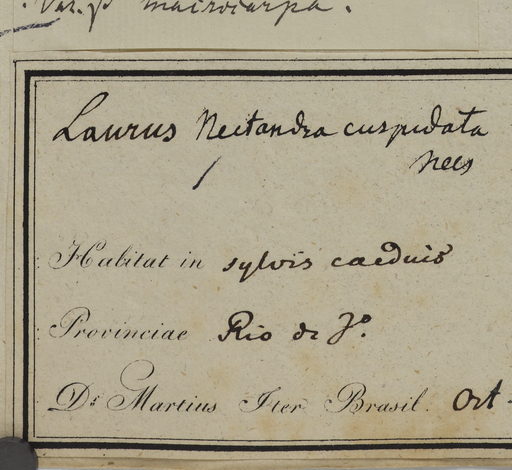 . Var. β macrocarpa.
Laurus Nectandra cuspidata
Nees
Habitat in sylvis caeduis
Provinciae Rio de J°.
Dr. Martius Iter Brasil. Oct-